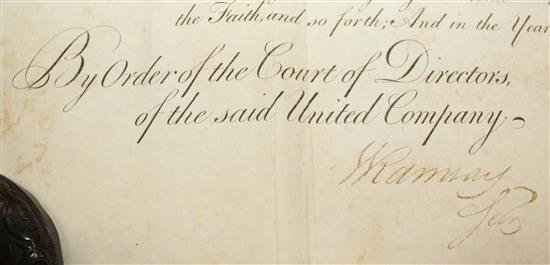 the Faith, and so forth; And in the Year
By Order of the Court of Directors,
of the said United Company,~
WRamsay
Secy